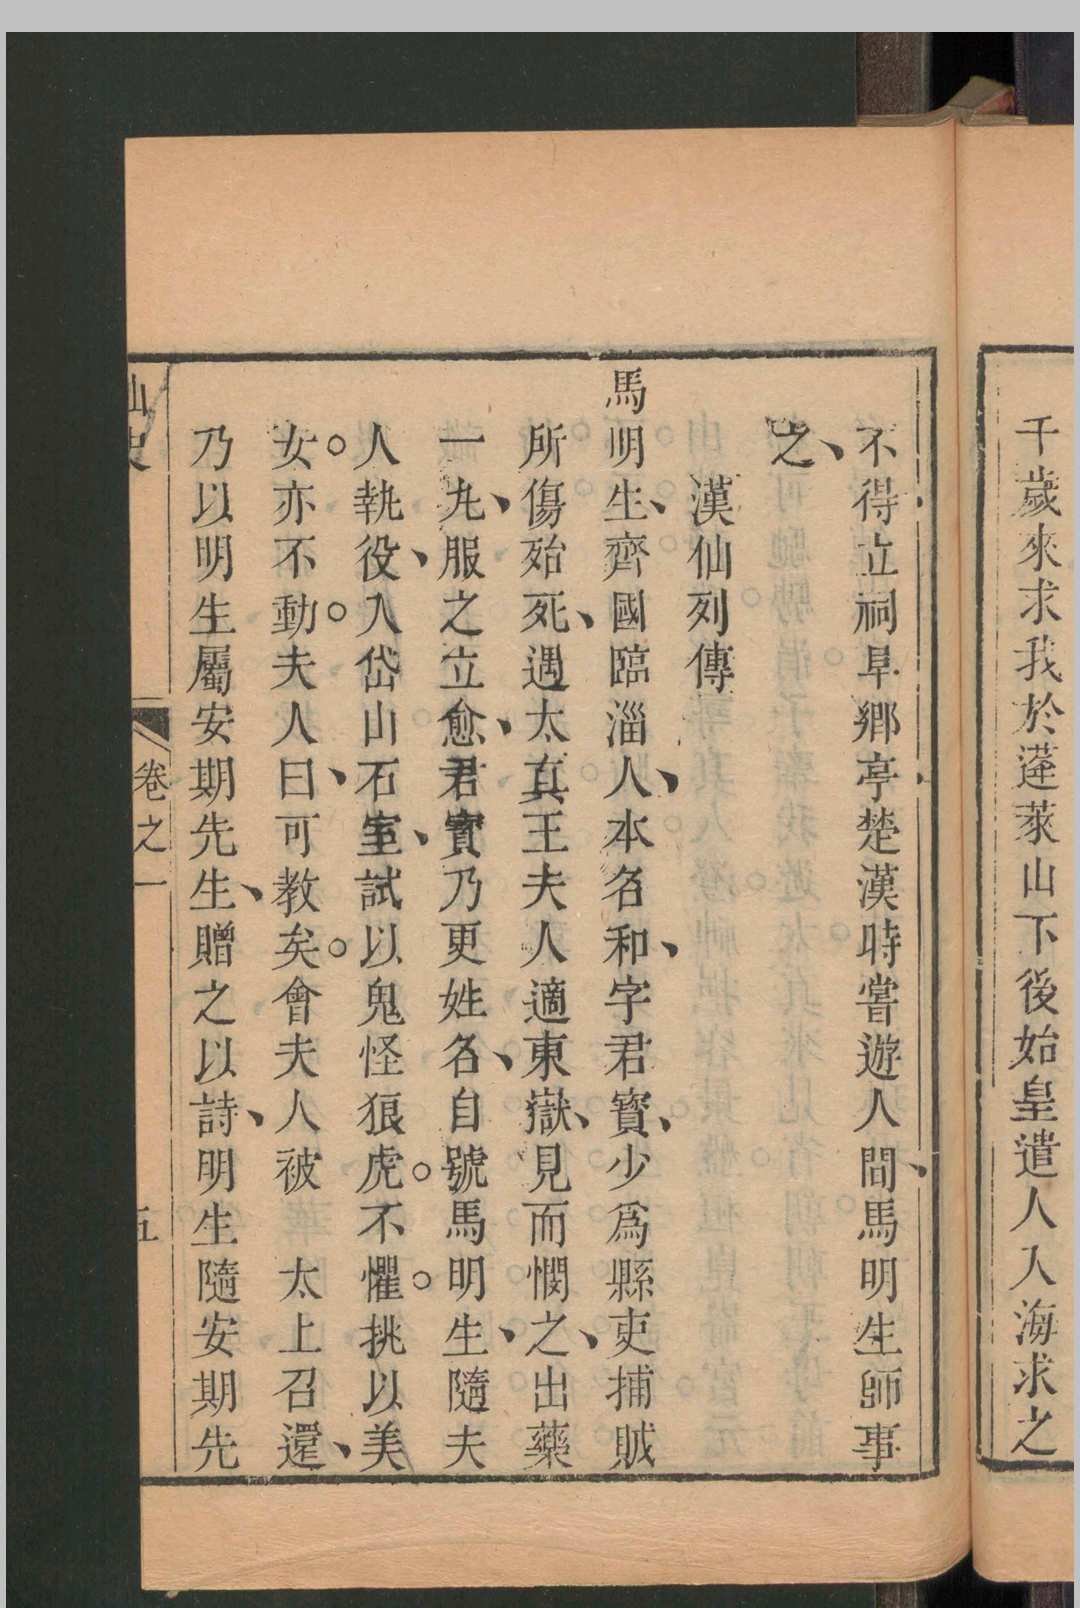 千歲來求我於蓬萊山下後始皇遣人入海求之
不得立祠阜鄉亭楚漢時嘗遊人間馬明生師事
之
漢仙列傳
馬明生齊國臨淄人本名和字君寶少爲縣吏捕賊
所傷殆死遇太真王夫人適東嶽見而憫之出藥
一丸服之立愈君寶乃更姓名自號馬明生隨夫
人執役入岱山石室試以鬼怪狼虎不懼挑以美
女亦不動夫人曰可教矣會夫人被　太上召還
乃以明生屬安期先生贈之以詩明生隨安期先
仙史　卷之一　五